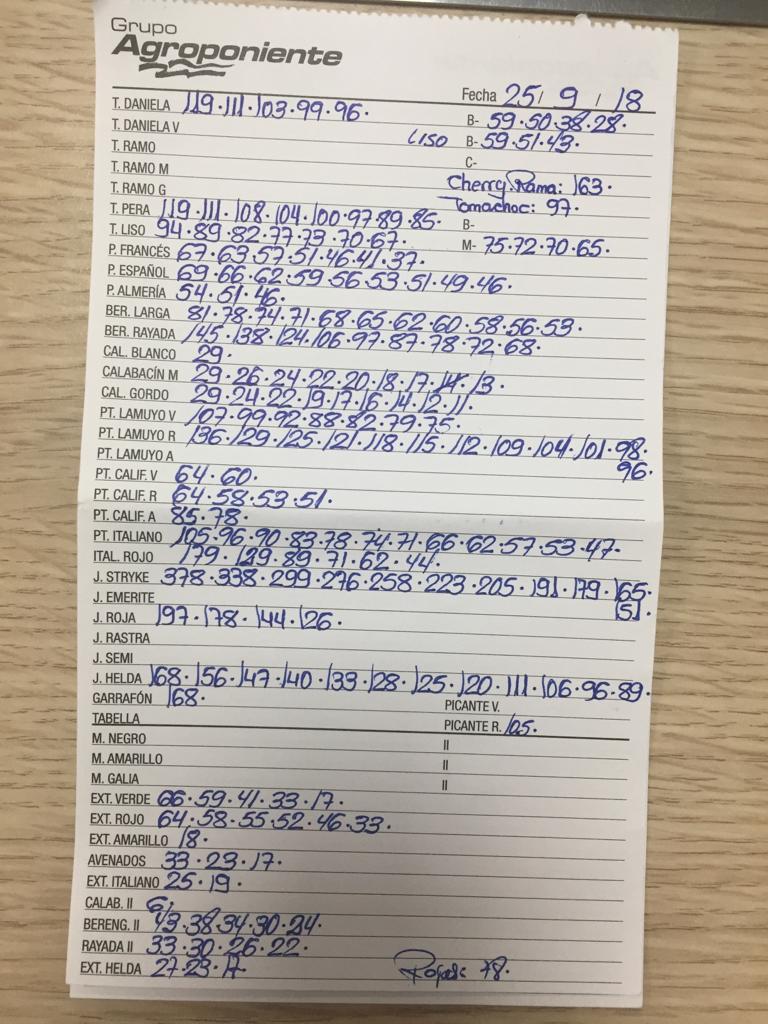 Grupo
Agroponiente
Fecha 25/ 9 / 18
T. DANIELA 119·111·103·99·96· B- 59·50·38·28·
T. DANIELA V LISO B- 59·51·43·
T. RAMO C-
T. RAMO M Cherry Rama: 163·
T. RAMO G Tomachoc: 97·
T. PERA 119·111·108·104·100·97·89·85· B-
T. LISO 94·89·82·77·73·70·67· M- 75·72·70·65·
P. FRANCÉS 67·63·57·51·46·41·37·
P. ESPAÑOL 69·66·62·59·56·53·51·49·46·
P. ALMERÍA 54·51·46·
BER. LARGA 81·78·74·71·68·65·62·60·58·56·53·
BER. RAYADA 145·138·124·106·97·87·78·72·68·
CAL. BLANCO 29·
CALABACÍN M 29·26·24·22·20·18·17·14·13·
CAL. GORDO 29·24·22·19·17·16·14·12·11·
PT. LAMUYO V 107·99·92·88·82·79·75·
PT. LAMUYO R 136·129·125·121·118·115·112·109·104·101·98·
PT. LAMUYO A 96·
PT. CALIF. V 64·60·
PT. CALIF. R 64·58·53·51·
PT. CALIF. A 85·78·
PT. ITALIANO 105·96·90·83·78·74·71·66·62·57·53·47·
ITAL. ROJO 179·129·89·71·62·44·
J. STRYKE 378·338·299·276·258·223·205·191·179·165·
J. EMERITE 151·
J. ROJA 197·178·144·126·
J. RASTRA
J. SEMI
J. HELDA 168·156·147·140·133·128·125·120·111·106·96·89·
GARRAFÓN 168· PICANTE V.
TABELLA PICANTE R. 105·
M. NEGRO II
M. AMARILLO II
M. GALIA II
EXT. VERDE 66·59·41·33·17·
EXT. ROJO 64·58·55·52·46·33·
EXT. AMARILLO 18·
AVENADOS 33·23·17·
EXT. ITALIANO 25·19·
CALAB. II 6·
BERENG. II 43·38·34·30·24·
RAYADA II 33·30·26·22·
EXT. HELDA 27·23·17· 78·